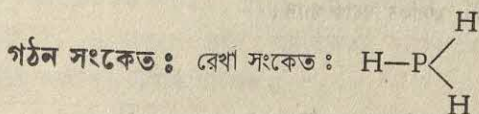 H
গঠন সংকেত : রেখা সংকেত : H—P<
H